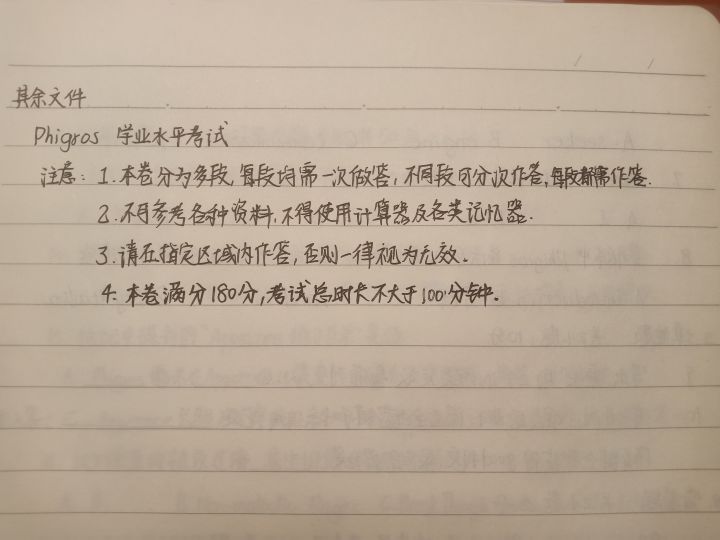 其余文件
Phigros 学业水平考试
注意: 1. 本卷分为多段,每段均需一次做答,不同段可分次作答,每段都需作答.
2. 不得参考各种资料,不得使用计算器及各类记忆器.
3. 请在指定区域内作答,否则一律视为无效.
4. 本卷满分180分,考试总时长不大于100分钟.